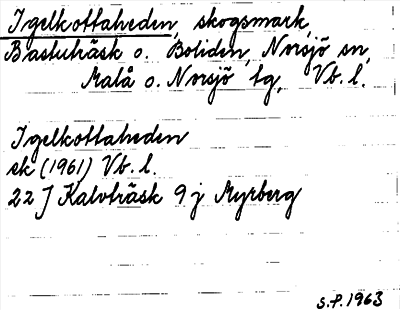 Igelkottaheden, skogsmark,
Bastuträsk o. Boliden, Norsjö sn,
Malå o. Norsjö tg, Vb. l.
Igelkottaheden
ek (1961) Vb. l.
22 J Kalvträsk 9 j Myrberg
S.P. 1963